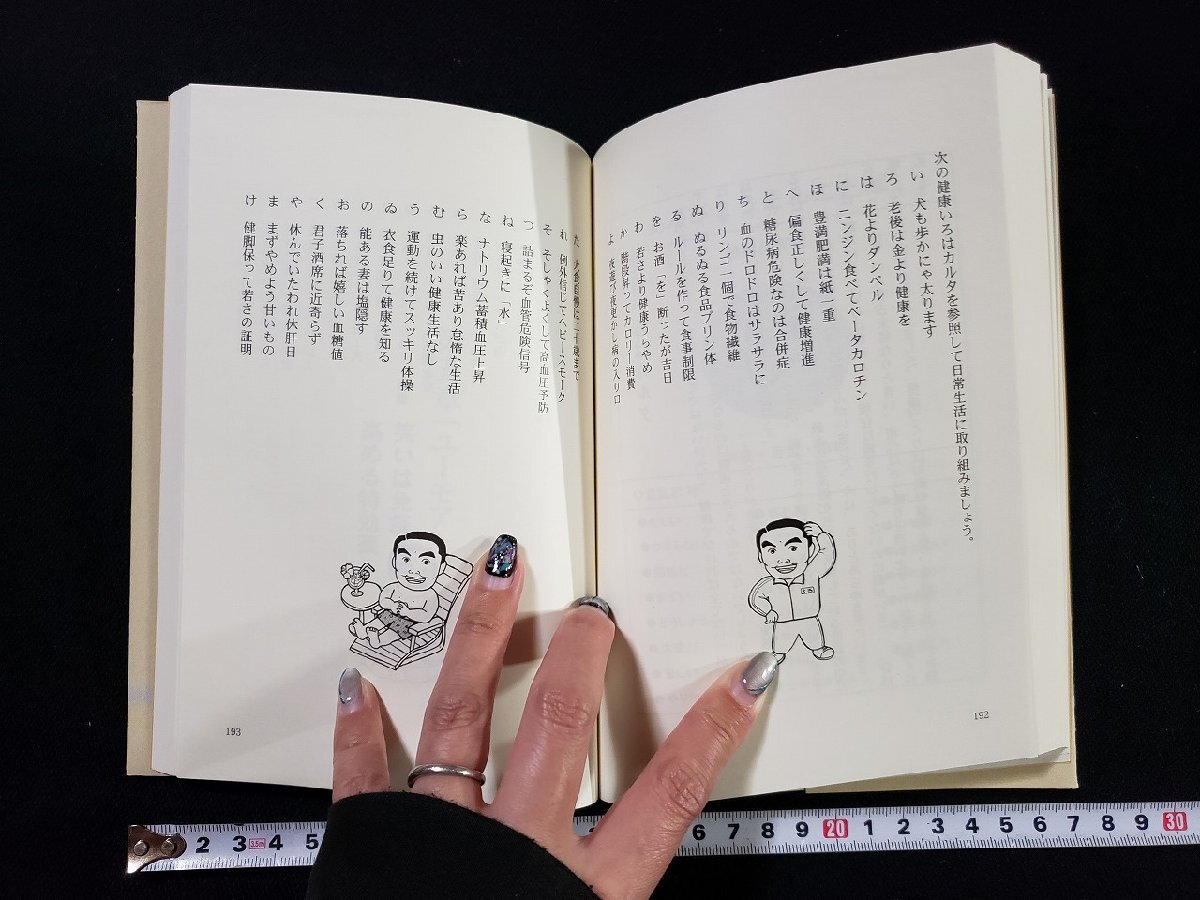 次の健康いろはカルタを参照して日常生活に取り組みましょう。
い 犬も歩かにゃ太ります
ろ 老後は金より健康を
は 花よりダンベル
に ニンジン食べてベータカロチン
ほ 豊満肥満は紙一重
へ 偏食正しくして健康増進
と 糖尿病危険なのは合併症
ち 血のドロドロはサラサラに
り リンゴ一個で食物繊維
ぬ ぬるぬる食品プリン体
る ルールを作って食事制限
を お酒「を」断ったが吉日
わ 若さより健康うらやめ
か 階段昇ってカロリー消費
よ 夜遊び夜更かし病の入り口
192
た 大食自慢は二十歳まで
れ 例外信じてヘビースモーク
そ そしゃくよくして高血圧予防
つ 詰まるぞ血管危険信号
ね 寝起きに「水」
な ナトリウム蓄積血圧上昇
ら 楽あれば苦あり怠惰な生活
む 虫のいい健康生活なし
う 運動を続けてスッキリ体操
ゐ 衣食足りて健康を知る
の 能ある妻は塩隠す
お 落ちれば嬉しい血糖値
く 君子酒席に近寄らず
や 休んでいたわれ休肝日
ま まずやめよう甘いもの
け 健脚保って若さの証明
193
2 3 3.5m 4 5
7 8 9 20 1 2 3 4 5 6 7 8 9 30